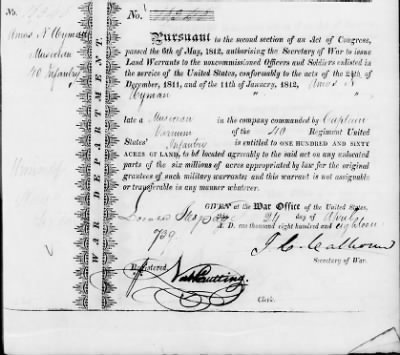 No.
Amos N. Hyman
Musician
40 Infantry
WAR DEPARTMENT.
No.
Pursuant to the second section of an Act of Congress,
passed the 6th of May, 1812, authorising the Secretary of War to issue
Land Warrants to the noncommissioned Officers and Soldiers enlisted in
the service of the United States, conformably to the acts of the 24th of
December, 1811, and of the 11th of January, 1812, Amos N.
Hyman
late a Musician in the company commanded by Captain
of the 40 Regiment United
States' Infantry is entitled to ONE HUNDRED AND SIXTY
ACRES OF LAND, to be located agreeably to the said act on any unlocated
part of the six millions of acres appropriated by law for the original
grantees of such military warrants; and this warrant is not assignable
or transferable in any manner whatever.
GIVEN at the War Office of the United States,
this 24 day of
A. D. one thousand eight hundred and eighteen
739.
J. C. Calhoun
Secretary of War.
Registered
Nath Cutting
Clerk.